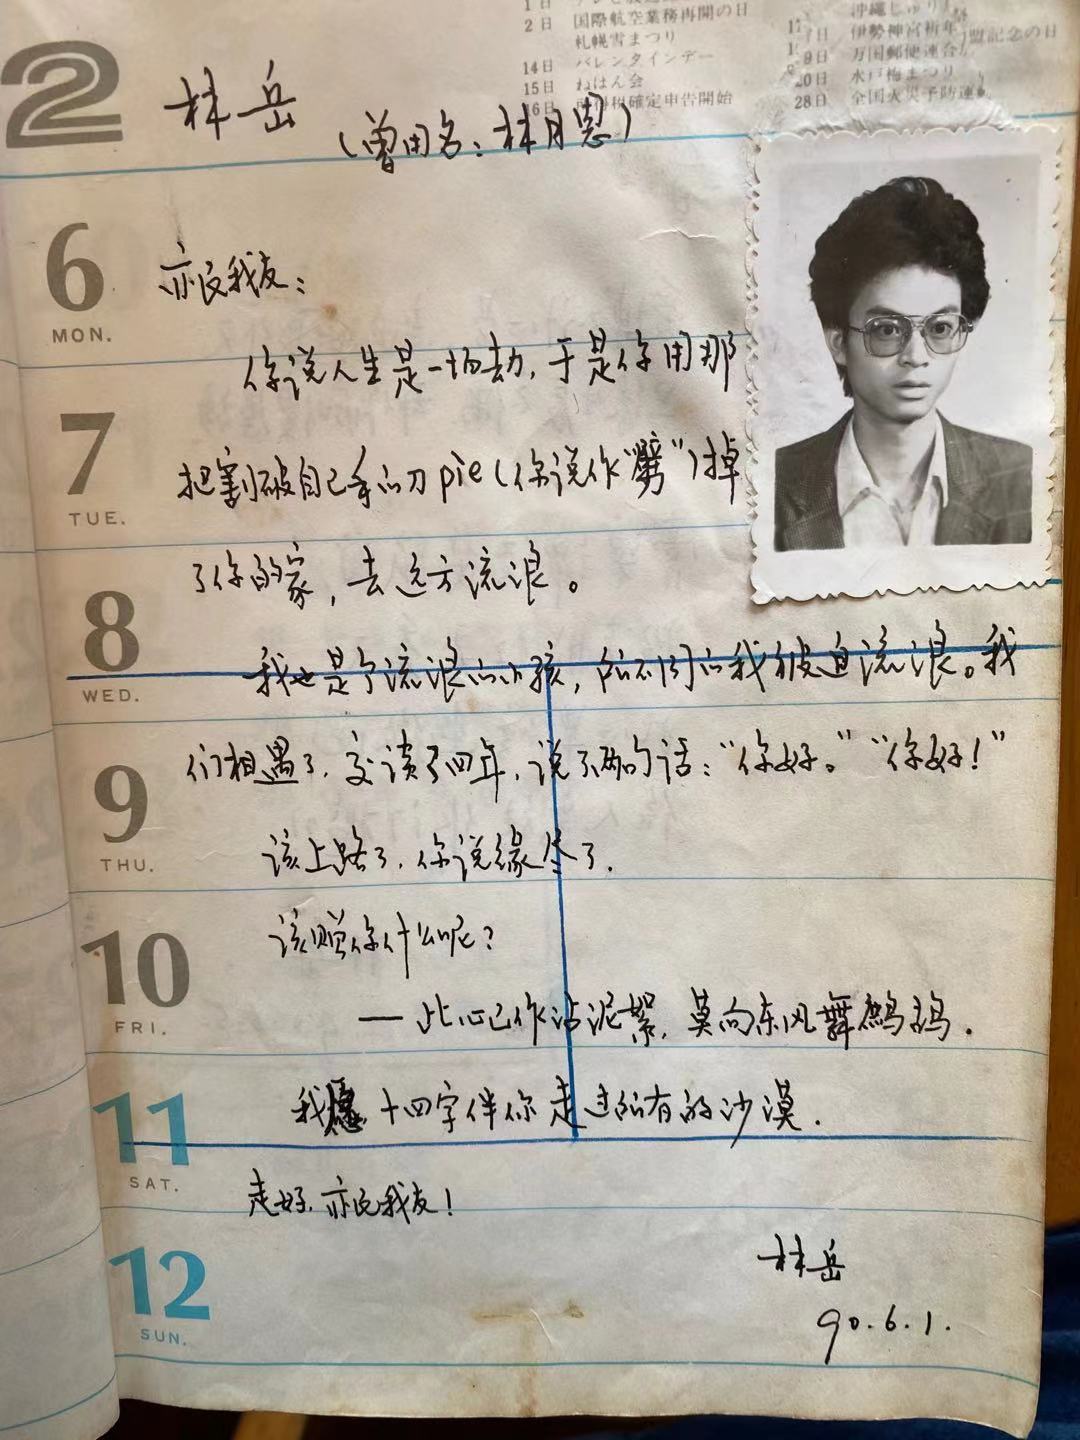 1日
2日 国際航空業務再開の日
札幌雪まつり
14日 バレンタインデー
15日 ねはん会
16日 所得税確定申告開始
沖縄じゅり
17日 伊勢神宮祈年
盟記念の日
19日 万国郵便連合
20日 水戸梅まつり
28日 全国火災予防運
2
林岳
(曾用名:林月思)
6
MON.
亦民我友:
你说人生是一场劫,于是你用那
7
TUE.
把割破自己手的刀pie(你说作“劈”)掉
了你的家,去远方流浪。
8
WED.
我也是个流浪的小孩,所不同的我被迫流浪。我
9
THU.
们相遇了,交谈了四年,说了两句话:“你好。”“你好!”
该上路了,你说缘尽了.
10
FRI.
该赠你什么呢?
— 此心已作沾泥絮,莫向东风舞鹧鸪.
11
SAT.
我愿十四字伴你走过所有的沙漠.
走好,亦民我友!
12
SUN.
林岳
90.6.1.